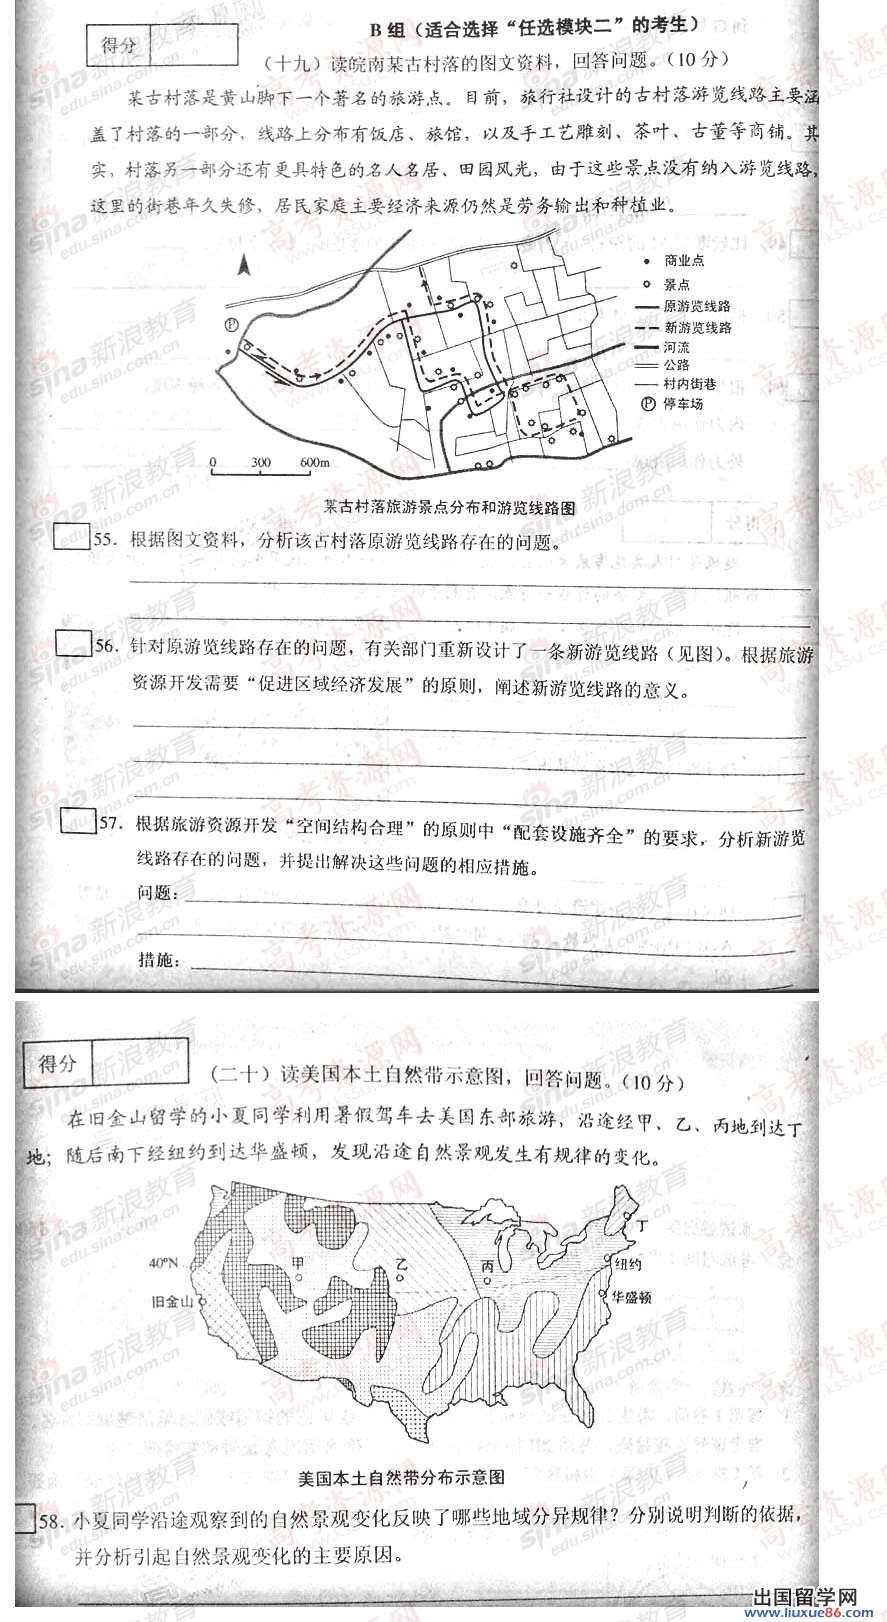 B 组（适合选择“任选模块二”的考生）
得分
（十九）读皖南某古村落的图文资料，回答问题。（10 分）
某古村落是黄山脚下一个著名的旅游点。目前，旅行社设计的古村落游览线路主要涵
盖了村落的一部分，线路上分布有饭店、旅馆，以及手工艺雕刻、茶叶、古董等商铺。其
实，村落另一部分还有更具特色的名人名居、田园风光，由于这些景点没有纳入游览线路，
这里的街巷年久失修，居民家庭主要经济来源仍然是劳务输出和种植业。
商业点
景点
原游览线路
新游览线路
河流
公路
村内街巷
Ⓟ 停车场
Ⓟ
0 300 600m
某古村落旅游景点分布和游览线路图
55．根据图文资料，分析该古村落原游览线路存在的问题。
56．针对原游览线路存在的问题，有关部门重新设计了一条新游览线路（见图）。根据旅游
资源开发需要“促进区域经济发展”的原则，阐述新游览线路的意义。
57．根据旅游资源开发“空间结构合理”的原则中“配套设施齐全”的要求，分析新游览
线路存在的问题，并提出解决这些问题的相应措施。
问题：
措施：
得分
（二十）读美国本土自然带示意图，回答问题。（10 分）
在旧金山留学的小夏同学利用暑假驾车去美国东部旅游，沿途经甲、乙、丙地到达丁
地；随后南下经纽约到达华盛顿，发现沿途自然景观发生有规律的变化。
丁
40°N
甲
乙
丙
纽约
旧金山
华盛顿
美国本土自然带分布示意图
58．小夏同学沿途观察到的自然景观变化反映了哪些地域分异规律？分别说明判断的依据，
并分析引起自然景观变化的主要原因。
sina新浪教育
edu.sina.com.cn
高考资源网
www.ks5u.com
出国留学网
www.liuxue86.com